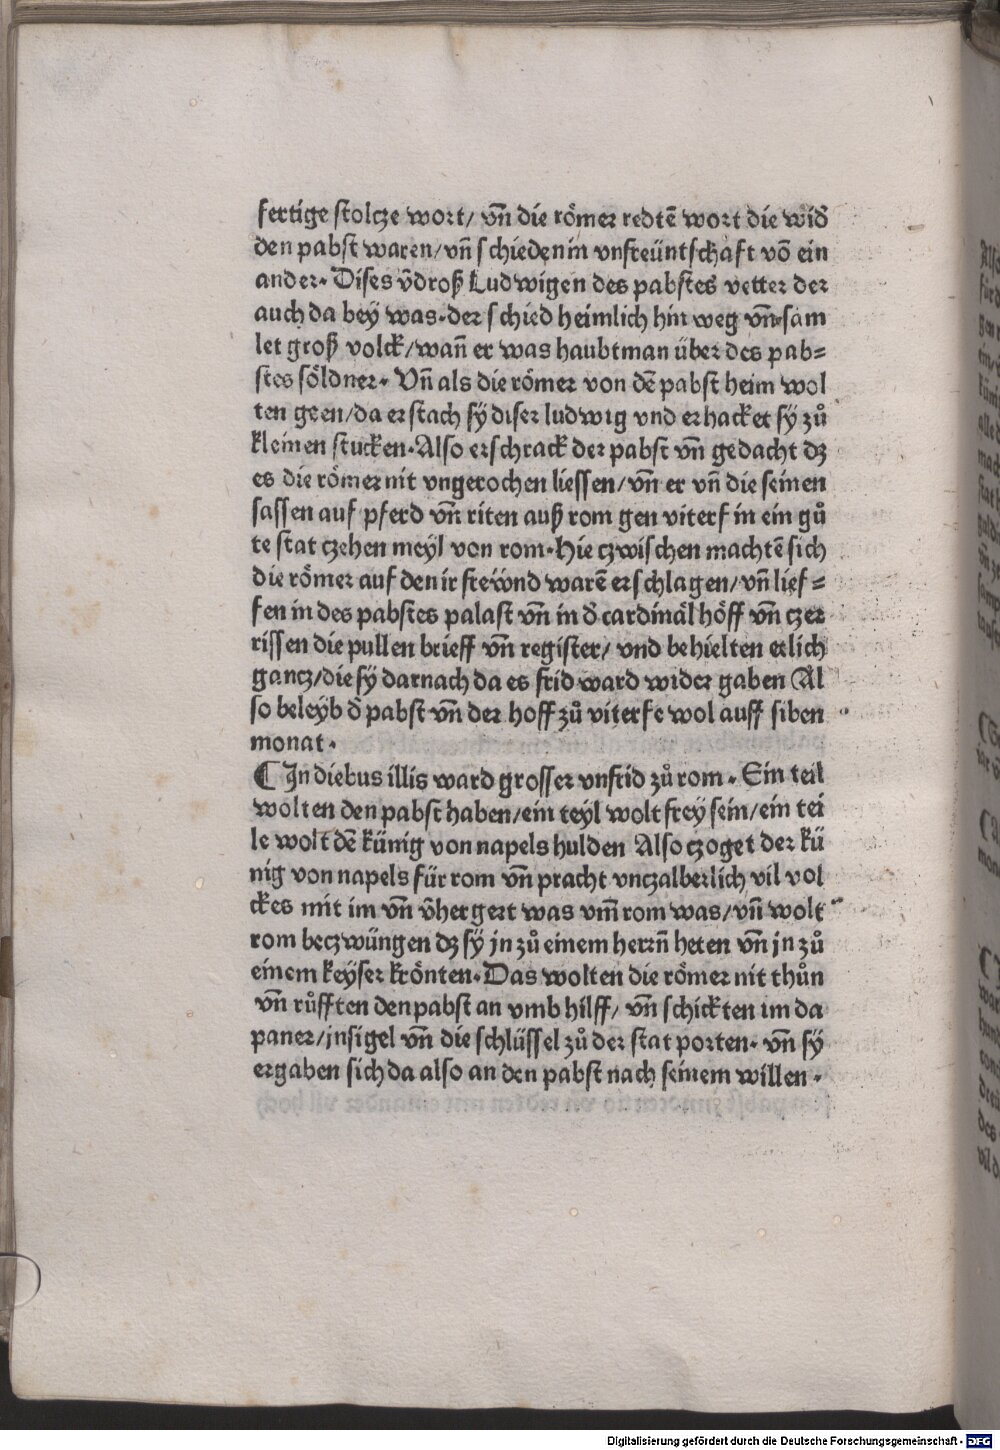 fertige stolcze wort/ vn̄ die römer redtē wort die wid̄
den pabst waren/vn̄ schieden in vnfreüntschaft vō ein
ander. Dises v̄droß Ludwigen des pabstes vetter der
auch da bey was.der schied heimlich hin weg vn̄ sam
let groß volck/wan̄ er was haubtman über des pab=
stes söldner. Vn̄ als die römer von dē pabst heim wol
ten geen/da erstach sÿ diser ludwig vnd erhacket sÿ zů
kleinen stucken.Also erschrack der pabst vn̄ gedacht dz
es die römer nit vngerochen liessen/vn̄ er vn̄ die seinen
sassen auf pferd vn̄ riten auß rom gen viterf in ein gů
te stat czehen meyl von rom.Hie czwischen machtē sich
die römer auf den ir freẅnd warē erschlagen/vn̄ lief=
fen in des pabstes palast vn̄ in d̄ cardinäl höff vn̄ czer
rissen die pullen brieff vn̄ register/ vnd behielten etlich
gancz/die sÿ darnach da es frid ward wider gaben Al
so beleyb d̄ pabst vn̄ der hoff zů viterfe wol auff siben
monat.
¶ In diebus illis ward grosser vnfrid zů rom. Ein teil
wolten den pabst haben/ein teyl wolt frey sein/ein tei
le wolt dē künig von napels hulden Also czoget der kü
nig von napels für rom vn̄ pracht vnczalberlich vil vol
ckes mit im vn̄ v̄hergert was vm̄ rom was/vn̄ wolt
rom beczwüngen dz sÿ jn zů einem herrn̄ heten vn̄ jn zů
einem keyser krönten.Das wolten die römer nit thůn
vn̄ růfften den pabst an vmb hilff/ vn̄ schickten im da
paner/jnsigel vn̄ die schlüssel zů der stat porten. vn̄ sÿ
ergaben sich da also an den pabst nach seinem willen.
Digitalisierung gefördert durch die Deutsche Forschungsgemeinschaft - DFG